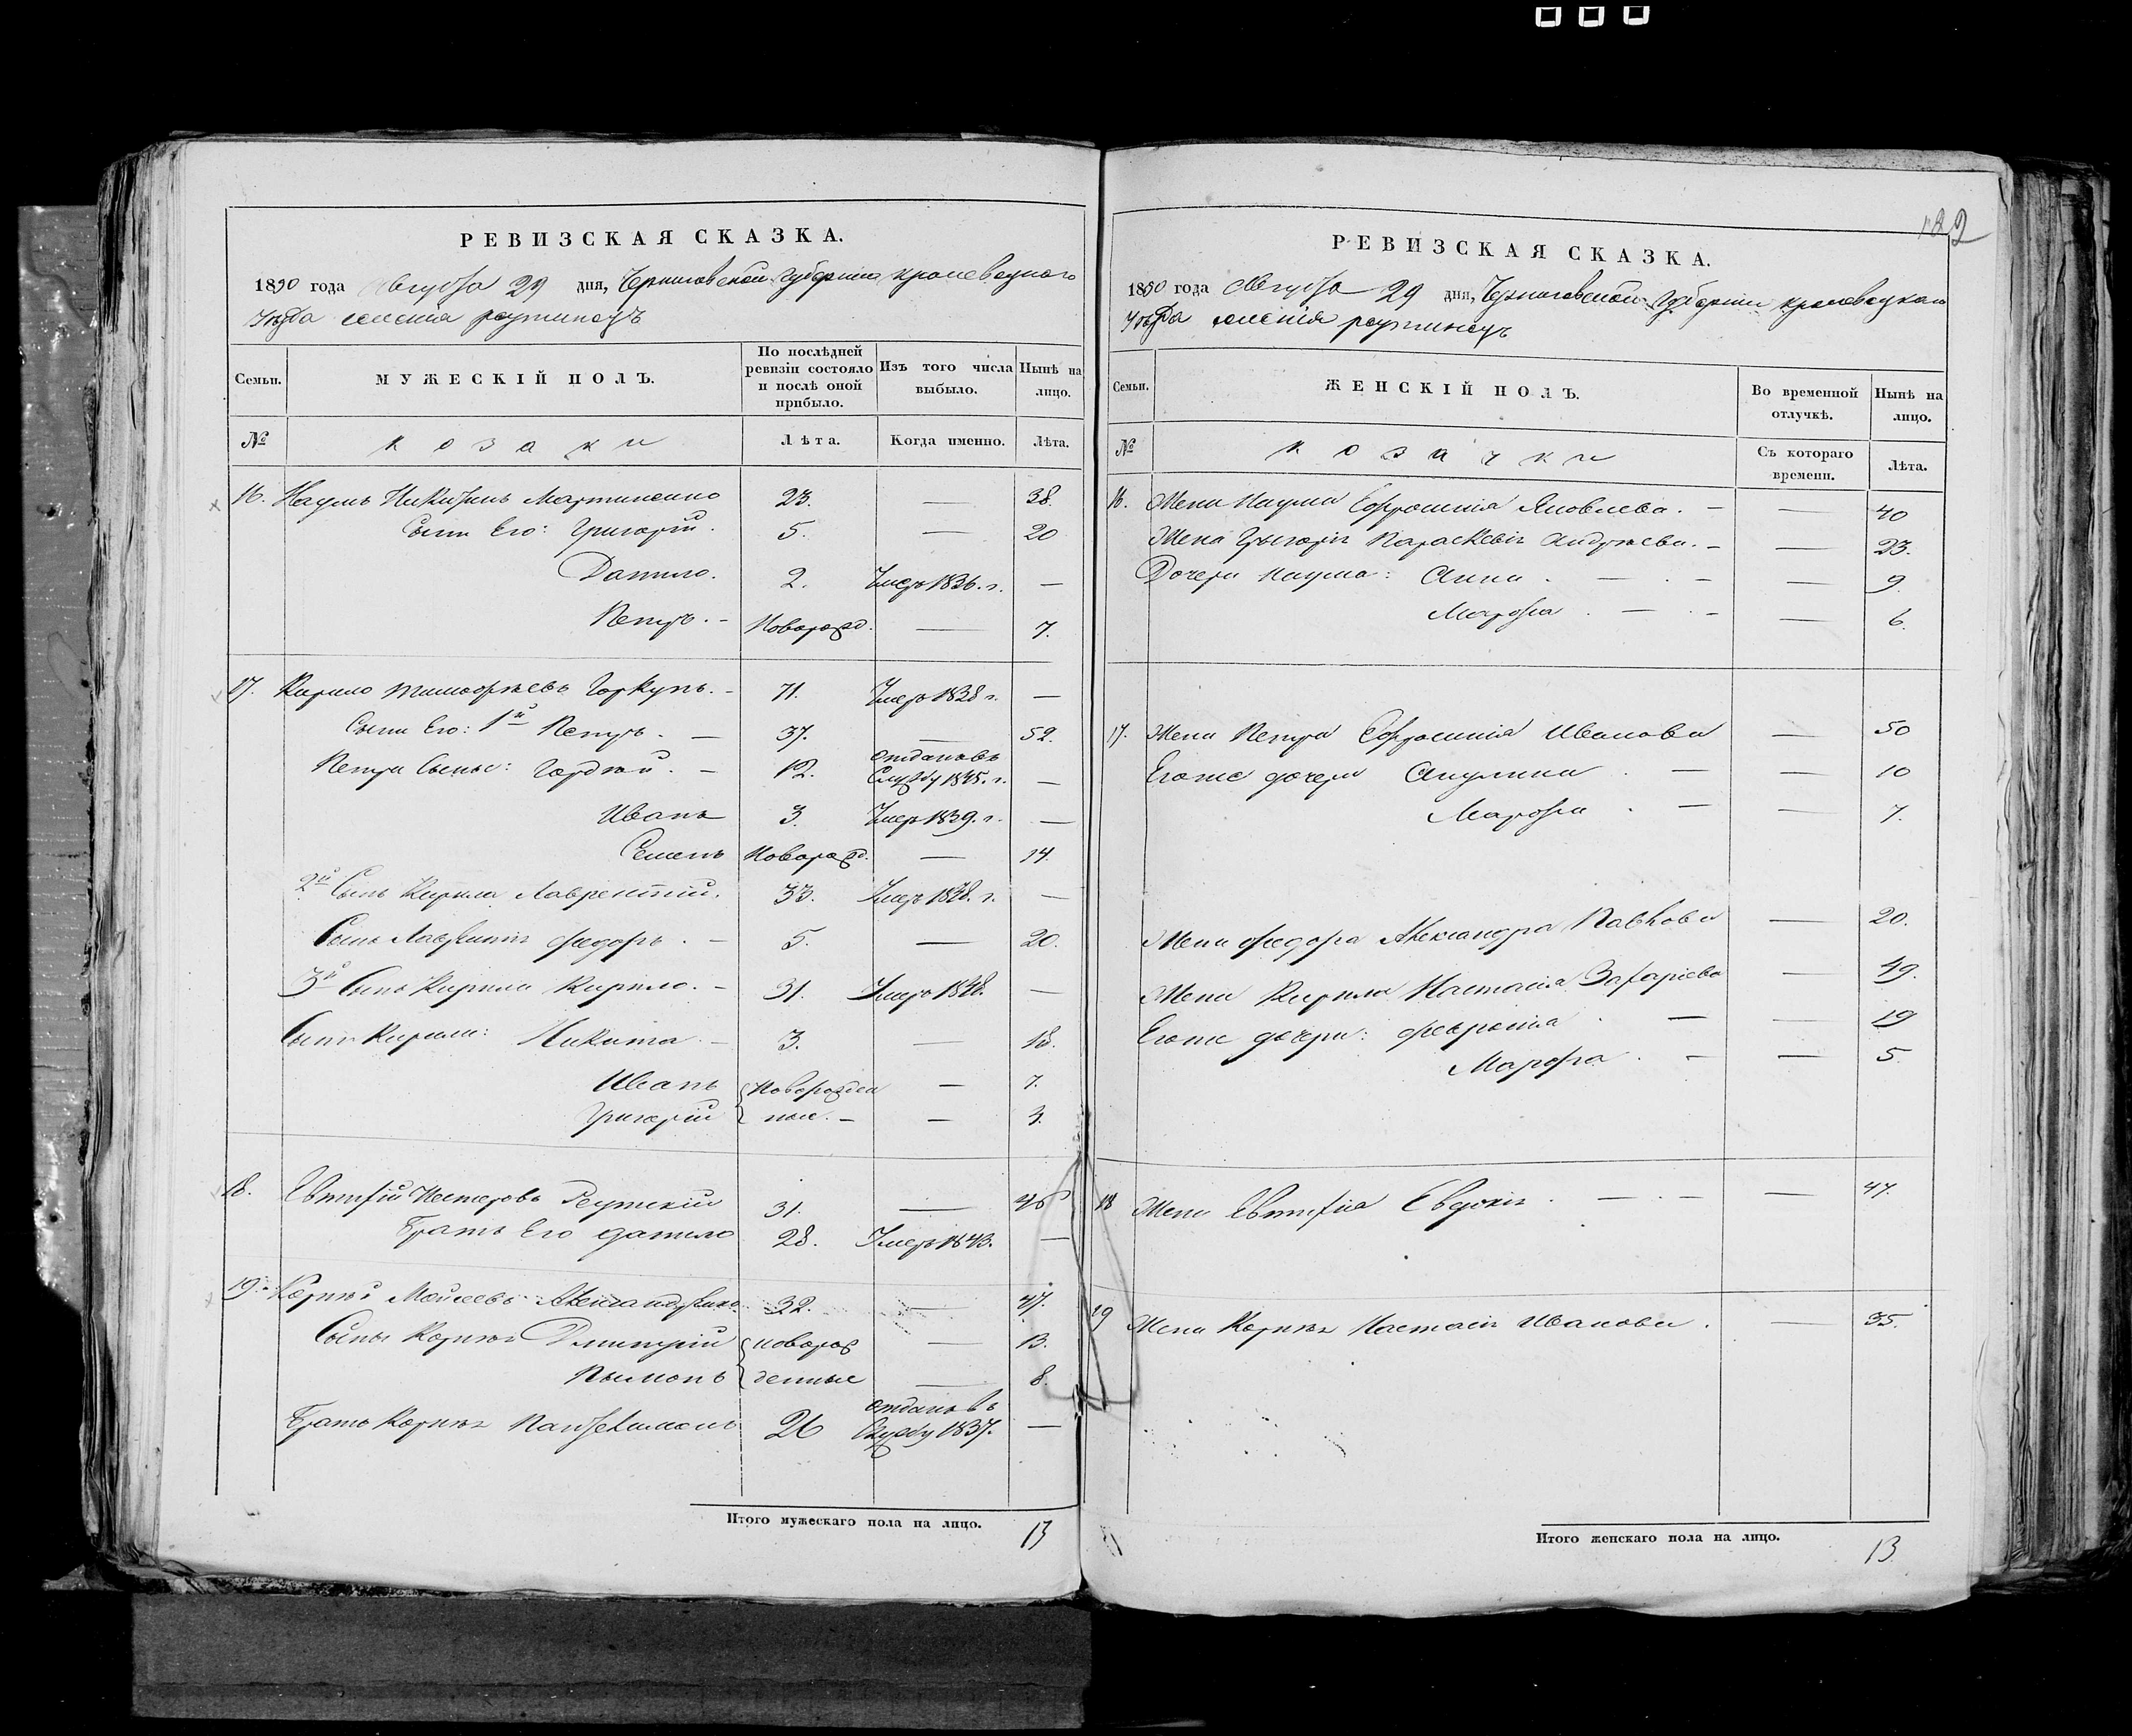 РЕВИЗСКАЯ СКАЗКА.
1850 года Августа 29 дня, Черниговской Губернии кролевецкого
Уѣзда селенія реутинецъ
Семьи.
МУЖЕСКІЙ ПОЛЪ.
По послѣдней ревизіи состояло и послѣ оной прибыло.
Изъ того числа выбыло.
Нынѣ на лицо.
№ козаки Лѣта. Когда именно. Лѣта.
16. Наумъ Никитинъ Мартиненко 23. — 38.
Сыны Его: Григорій. 5. — 20
Данило. 2. Умеръ 1836. г. —
Петръ. — Новорожд. — 7.
17. Кирило тимофѣевъ Горкунъ. — 71. Умеръ 1838 г. —
Сыны Его: 1й Петръ. — 37. — 52.
Петра Сыны: Гордѣй. — 12. отданъ въ Службу 1845. г. —
Иванъ 3. Умеръ 1839. г. —
Семенъ Новорожд. — 14.
2й Сынъ Кирила Лаврентій. 33. Умеръ 1848. г. —
Сынъ Лаврентія федоръ. — 5. — 20.
3й Сынъ Кирила Кирило. — 31. Умеръ 1848. —
Сыны Кирила: Никита. — 3. — 18.
Иванъ Новорожден — 7.
Григорій ные. — — 3.
18. Евтифій Нестеровъ Реутскій 31. — 46
Братъ Его данило 28. Умеръ 1843. —
19. Корнѣй Мойсеевъ Александренко 32. — 47.
Сыны Корнѣя Дмитрій новорож — 13.
Пымонъ денные — 8.
Братъ Корнѣя Пантелимонъ 26 отданъ въ Службу 1837. —
Итого мужескаго пола на лицо. 13
182
РЕВИЗСКАЯ СКАЗКА.
1850 года Августа 29 дня, Черниговской Губерніи кролевецкого
Уѣзда селенія реутинецъ
Семьи.
ЖЕНСКІЙ ПОЛЪ.
Во временной отлучкѣ.
Нынѣ на лицо.
№ козачки Съ котораго времени. Лѣта.
16. Жена Наума Ефросинія Яковлева. — — 40
Жена Григорія Параскевія Андреева. — — 23.
Дочери Наума: Анна. — — — 9
Марфа. — — — 6.
17. Жена Петра Ефросинія Иванова — 50
Егоже дочери Акулина. — — 10
Марфа. — — 7.
Жена федора Александра Павлова — 20.
Жена Кирила Настасія Захаріева — 49.
Егоже дочери: февронія. — — 19
Марфа. — — 5
18 Жена Евтифія Евдокія. — — — 47.
19 Жена Корнѣя Настасія Иванова. — 35.
Итого женскаго пола на лицо. 13